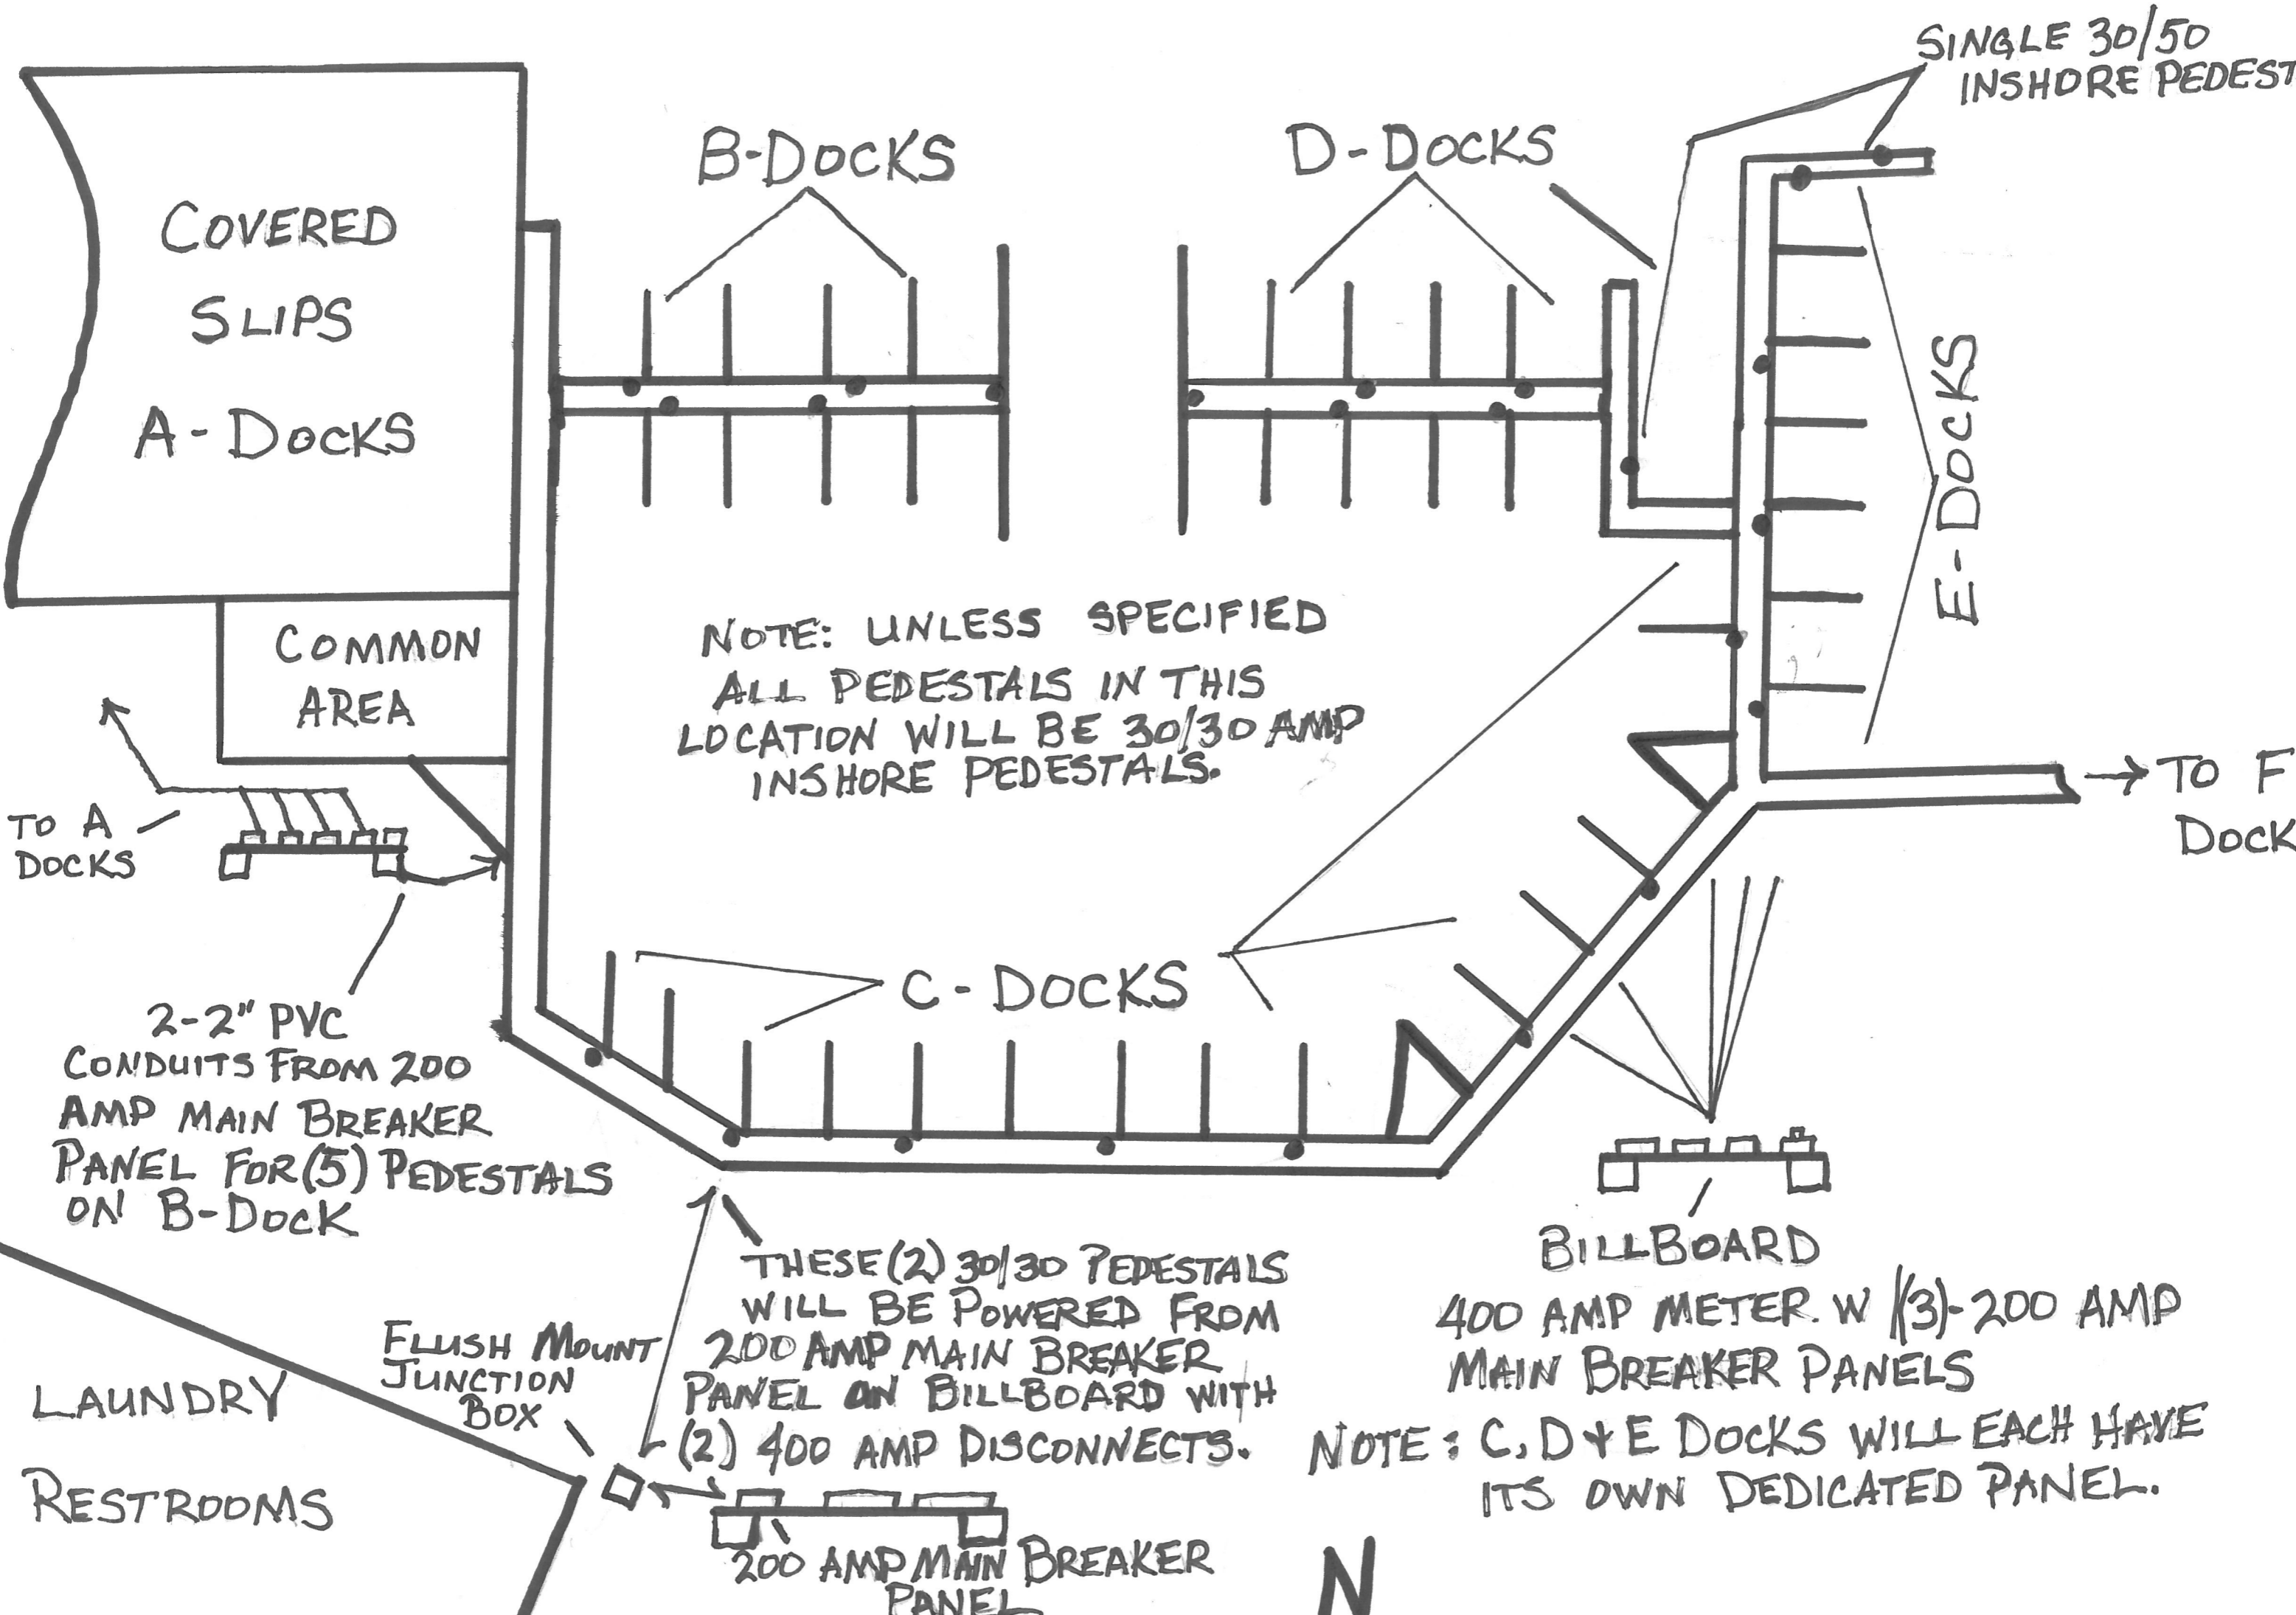 SINGLE 30/50
INSHORE PEDEST
B-DOCKS
D-DOCKS
COVERED
SLIPS
A-DOCKS
E-DOCKS
COMMON
AREA
NOTE: UNLESS SPECIFIED
ALL PEDESTALS IN THIS
LOCATION WILL BE 30/30 AMP
INSHORE PEDESTALS.
TO A
DOCKS
TO F
DOCK
C-DOCKS
2-2" PVC
CONDUITS FROM 200
AMP MAIN BREAKER
PANEL FOR (5) PEDESTALS
ON B-DOCK
THESE (2) 30/30 PEDESTALS
WILL BE POWERED FROM
200 AMP MAIN BREAKER
PANEL ON BILLBOARD WITH
(2) 400 AMP DISCONNECTS.
FLUSH MOUNT
JUNCTION
BOX
BILLBOARD
400 AMP METER. W/(3)-200 AMP
MAIN BREAKER PANELS
NOTE: C, D & E DOCKS WILL EACH HAVE
ITS OWN DEDICATED PANEL.
LAUNDRY
RESTROOMS
200 AMP MAIN BREAKER
PANEL
N